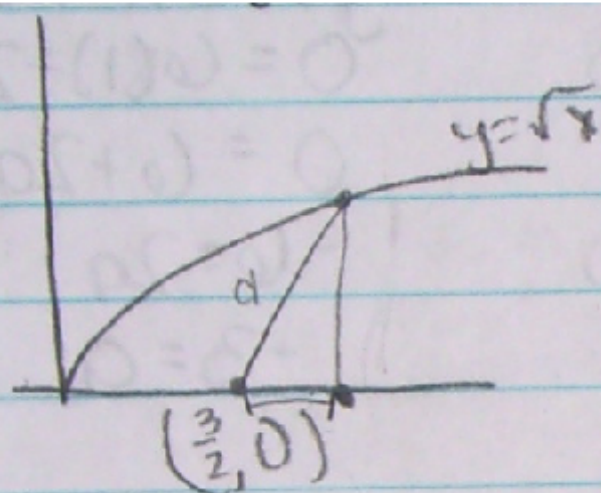 y=√x
d
(3/2, 0)